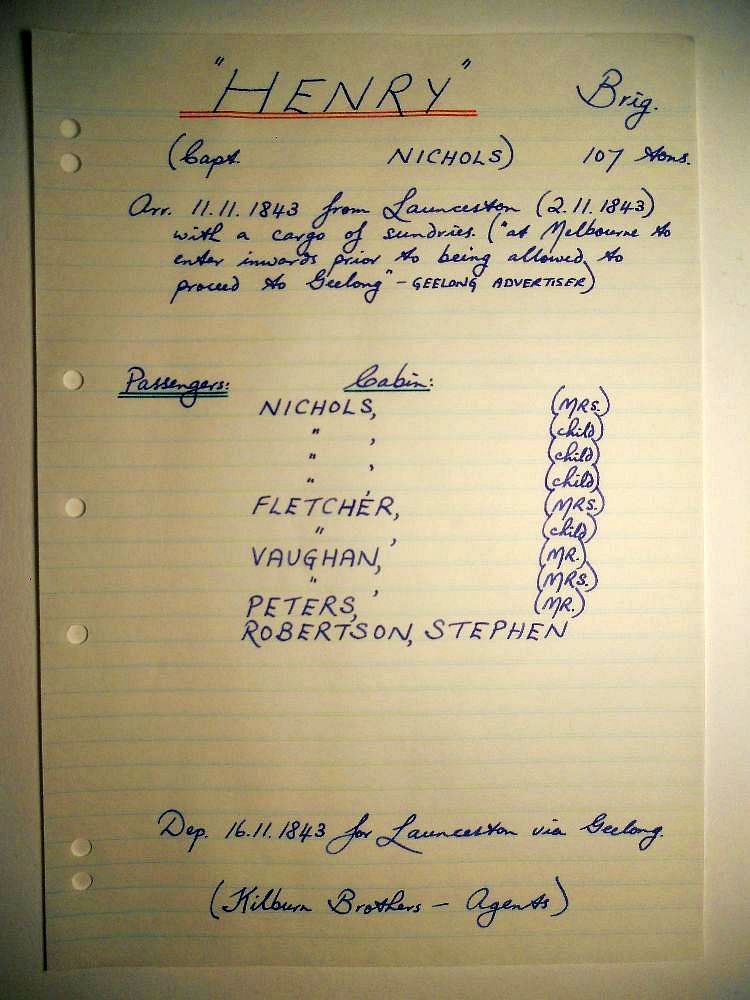 "HENRY" Brig.
(Capt. NICHOLS) 107 tons.
Arr. 11.11.1843 from Launceston (2.11.1843)
with a cargo of sundries. ("at Melbourne to
enter inwards prior to being allowed to
proceed to Geelong" - GEELONG ADVERTISER)
Passengers: Cabin:
NICHOLS, (MRS.)
" , (child)
" , (child)
" , (child)
FLETCHER, (MRS.)
" , (child)
VAUGHAN, (MR.)
" , (MRS.)
PETERS, (MR.)
ROBERTSON, STEPHEN
Dep. 16.11.1843 for Launceston via Geelong.
(Kilburn Brothers - Agents)